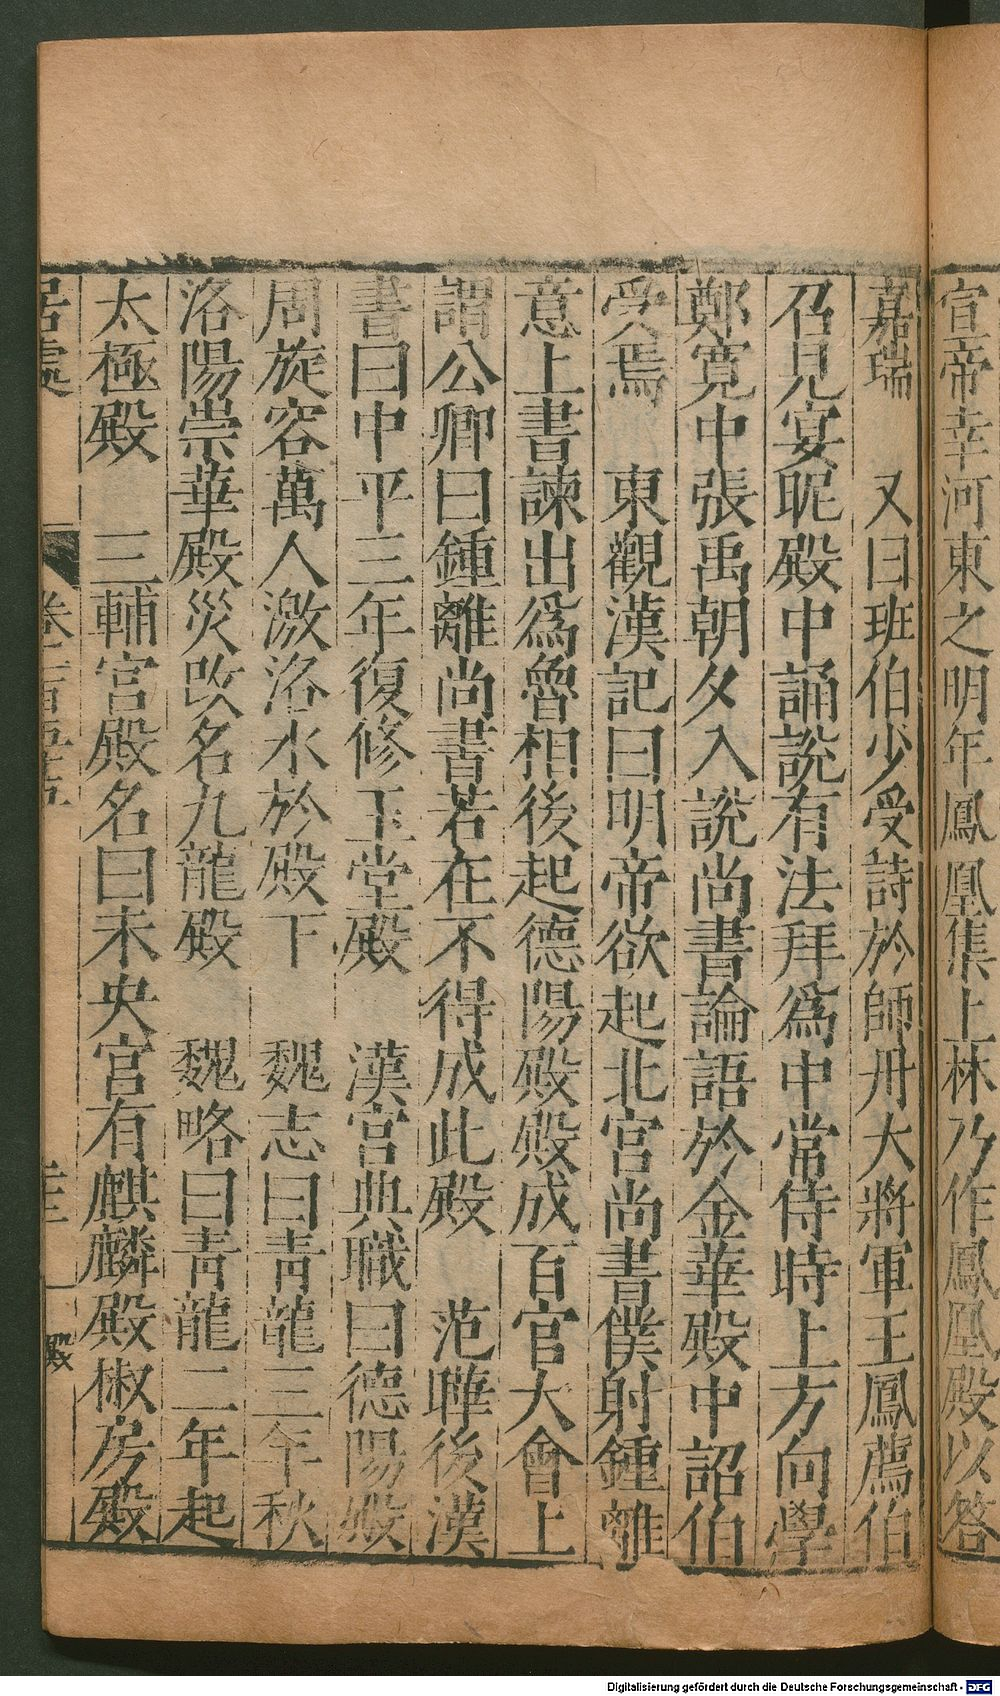 宣帝幸河東之明年鳳凰集上林乃作鳳凰殿以答
嘉瑞　又曰班伯少受詩於師丹大將軍王鳳薦伯
召見宴昵殿中誦說有法拜爲中常侍時上方向學
鄭寬中張禹朝夕入說尚書論語於金華殿中詔伯
受焉　東觀漢記曰明帝欲起北宮尚書僕射鍾離
意上書諫出爲魯相後起德陽殿殿成百官大會上
謂公卿曰鍾離尚書若在不得成此殿　范曄後漢
書曰中平三年復修玉堂殿　漢宮典職曰德陽殿
周旋容萬人激洛水於殿下　魏志曰青龍三年秋
洛陽崇華殿災改名九龍殿　魏略曰青龍二年起
太極殿　三輔宮殿名曰未央宮有麒麟殿椒房殿
居處　卷一百五十五　殿
Digitalisierung gefördert durch die Deutsche Forschungsgemeinschaft - DFG